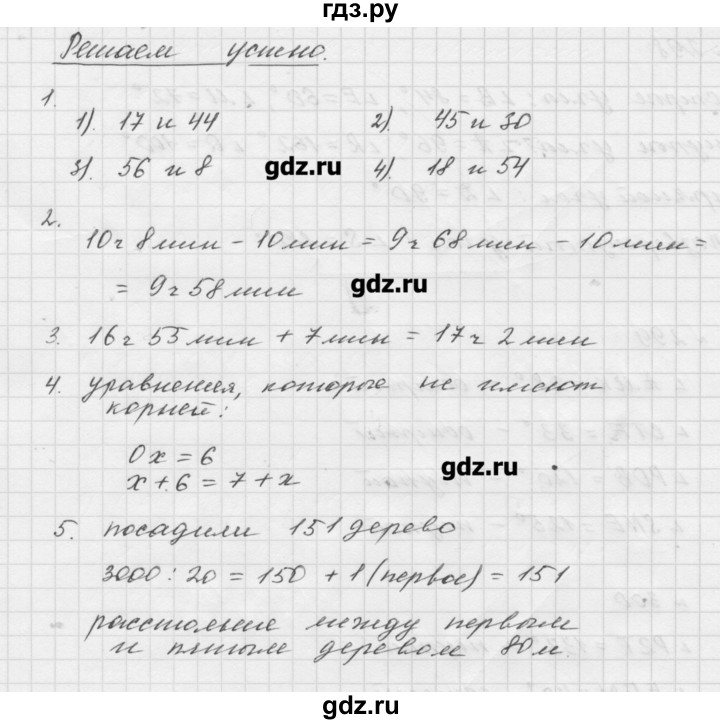 гдз.ру
Решаем устно.
1.
1). 17 и 44 2). 45 и 30
3). 56 и 8 gdz.ru 4). 18 и 54
2.
10 ч 8 мин – 10 мин = 9 ч 68 мин – 10 мин =
= 9 ч 58 мин gdz.ru
3. 16 ч 55 мин + 7 мин = 17 ч 2 мин
4. уравнения, которые не имеют
корней:
0x = 6
x + 6 = 7 + x gdz.ru
5. посадили 151 дерево
3000 : 20 = 150 + 1 (первое) = 151
расстояние между первым
и пятым деревом 80 м.
gdz.ru